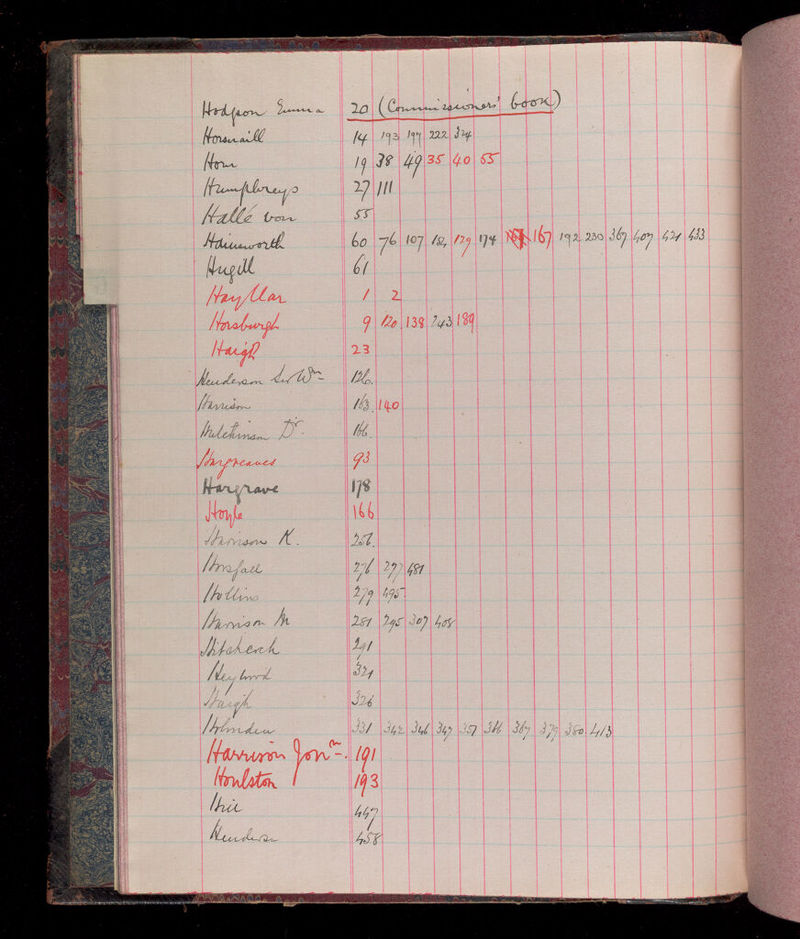 Hodgson Emma 20 (Commissioners' book)
Horsnaill 14 193 197 222 324
Horn 19 38 49 35 40 55
Humphreys 27 111
Hallé von 55
Hainsworth 60 76 107 182 129 174 167 192 230 367 407 421 433
Hugill 61
Hayllar 1 2
Horsburgh 9 120 138 243 189
Haigh 23
Henderson Sir Wm 126
Harrison 163 140
Hutchinson Dr. 166
Hargreaves 93
Hargrave 178
Hoyle 166
Harrison K. 256
Horsfall 276 277 481
Hollins 279 495
Harrison M 281 295 307 408
Hitchcock 291
Heywood 321
Haigh 326
Holmden 331 342 346 347 357 366 367 379 380 413
Harrison Jonn. 191
Houlston 193
447
Henderson 458